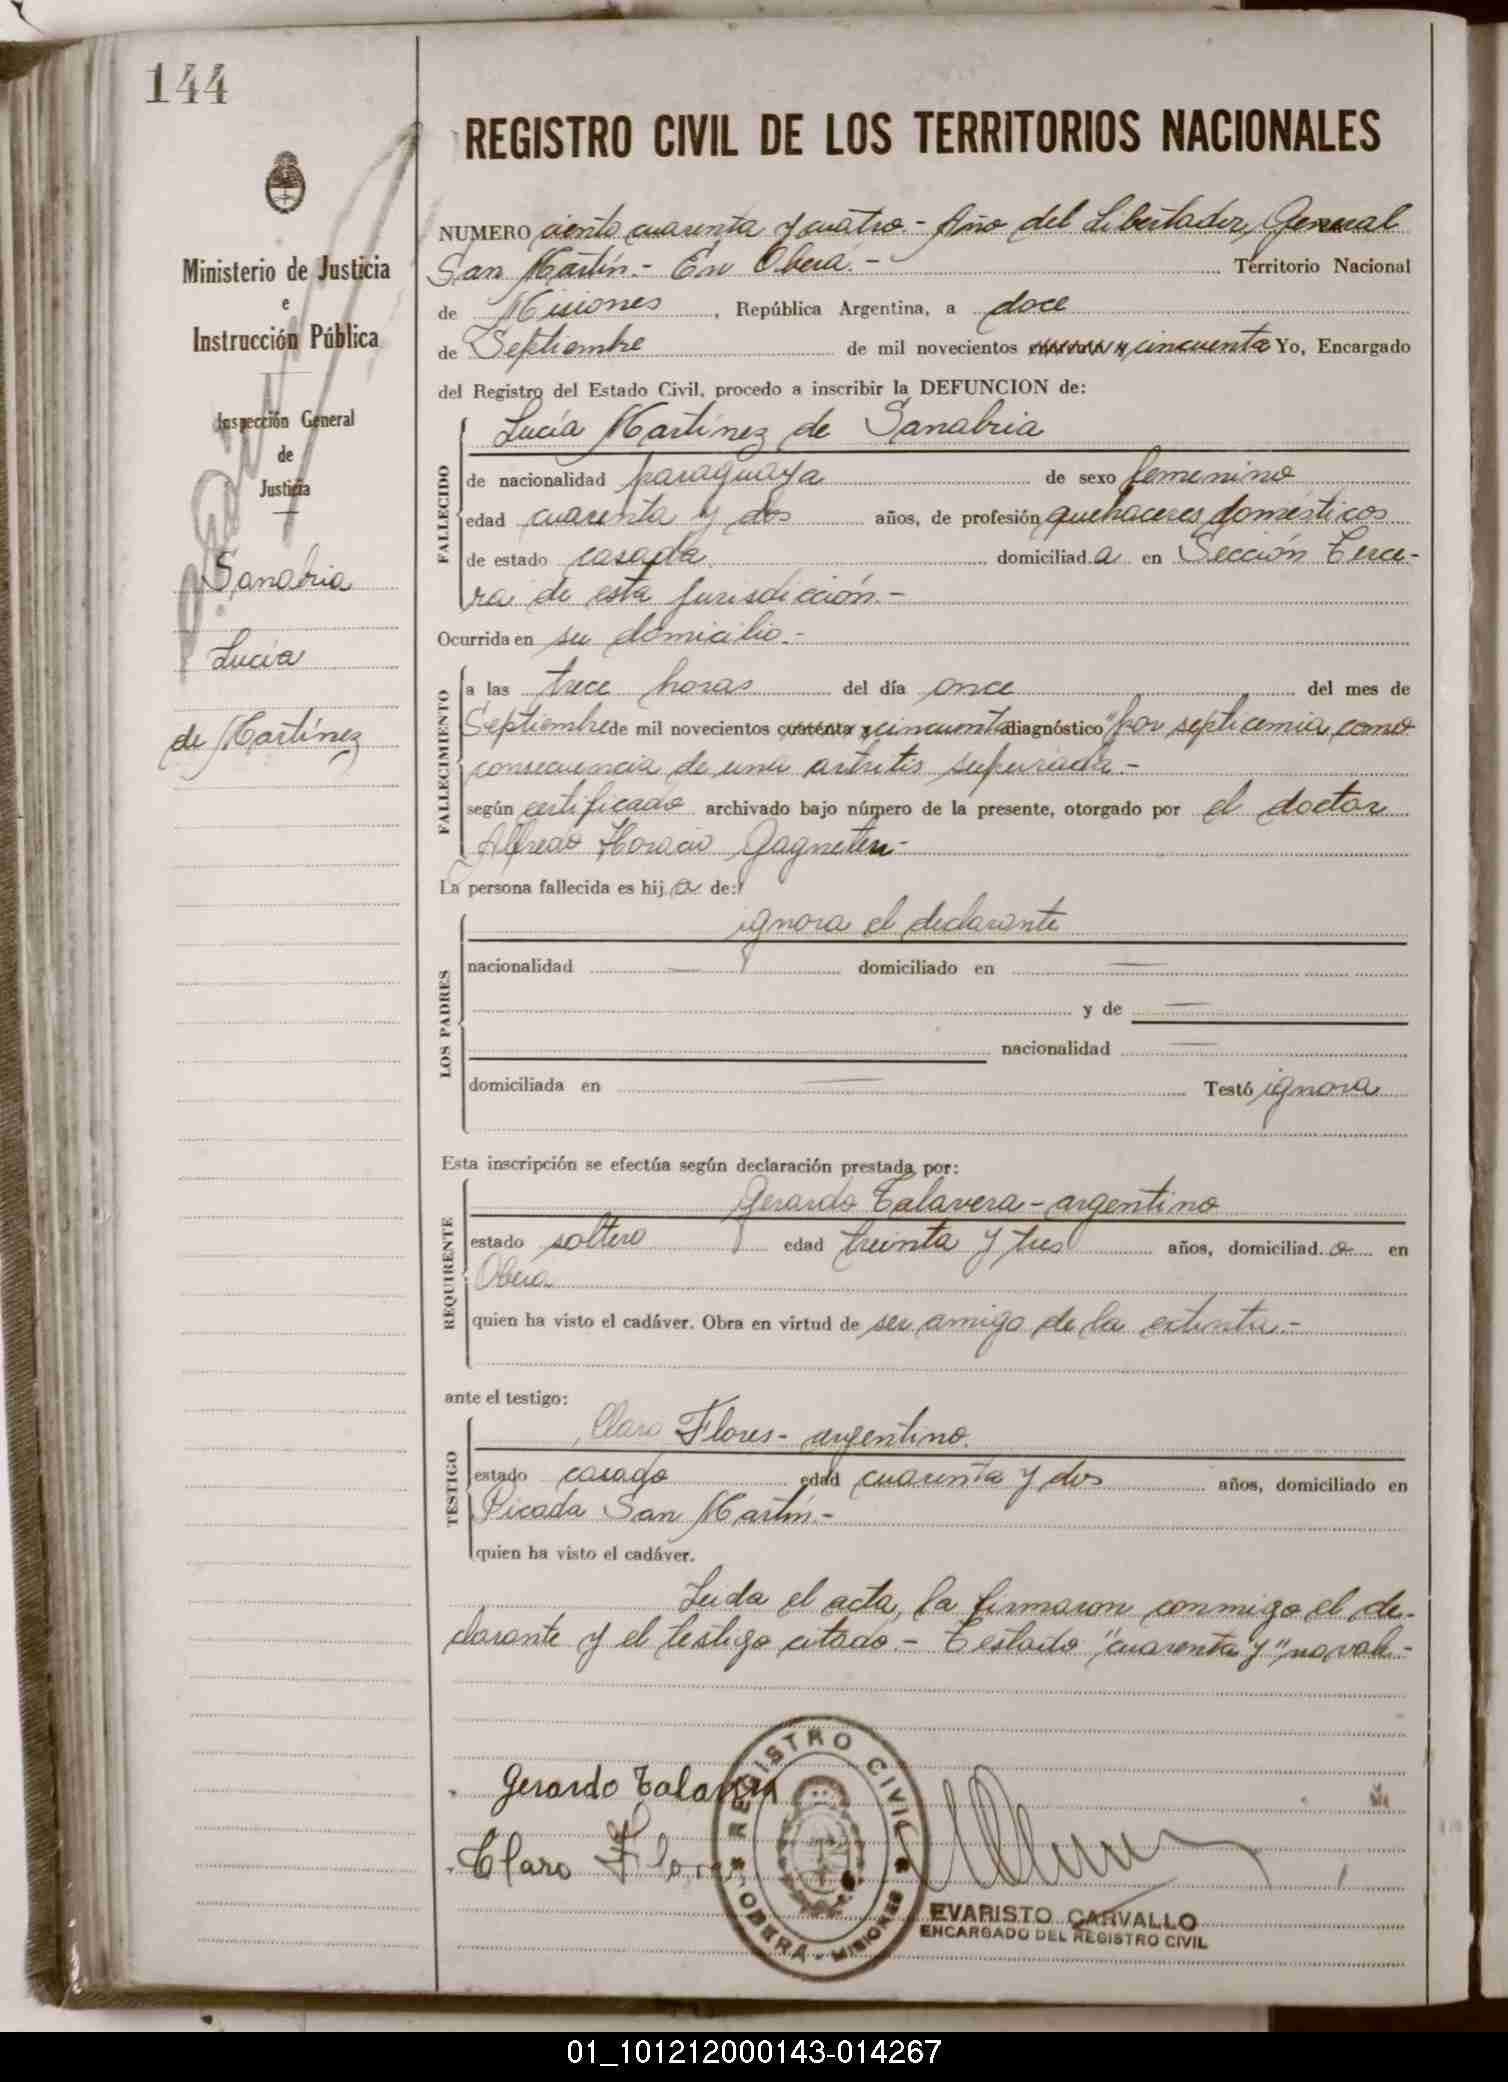 144
REGISTRO CIVIL DE LOS TERRITORIOS NACIONALES
Ministerio de Justicia
e
Instrucción Pública
Inspección General
de
Justicia
Sanabria
Lucía
de Martínez
NUMERO ciento cuarenta y cuatro.- Año del Libertador General
San Martín.- En Oberá.- Territorio Nacional
de Misiones, República Argentina, a doce
de Septiembre de mil novecientos cuarenta y cincuenta Yo, Encargado
del Registro del Estado Civil, procedo a inscribir la DEFUNCION de:
FALLECIDO
Lucía Martínez de Sanabria
de nacionalidad paraguaya de sexo femenino
edad cuarenta y dos años, de profesión quehaceres domésticos
de estado casada domiciliad a en Sección Terce-
ra de esta jurisdicción.-
Ocurrida en su domicilio.-
FALLECIMIENTO
a las trece horas del día once del mes de
Septiembre de mil novecientos cuarenta y cincuenta diagnóstico "por septicemia, como
consecuencia de una artritis supurada.-
según certificado archivado bajo número de la presente, otorgado por el doctor
Alfredo Horacio Gagneten-
La persona fallecida es hij a de:
LOS PADRES
ignora el declarante
nacionalidad — domiciliado en —
y de —
nacionalidad —
domiciliada en — Testó ignora
Esta inscripción se efectúa según declaración prestada por:
REQUIRENTE
Gerardo Talavera - argentino
estado soltero edad treinta y tres años, domiciliad o en
Oberá
quien ha visto el cadáver. Obra en virtud de ser amigo de la extinta.-
ante el testigo:
TESTIGO
Claro Flores - argentino.
estado casado edad cuarenta y dos años, domiciliado en
Picada San Martín.-
quien ha visto el cadáver.
Leida el acta, la firmaron conmigo el de-
clarante y el testigo citado.- Testado "cuarenta y" no vale.-
Gerardo Talavera
Claro Flores
REGISTRO CIVIL
OBERÁ - MISIONES
EVARISTO CARVALLO
ENCARGADO DEL REGISTRO CIVIL
01_101212000143-014267